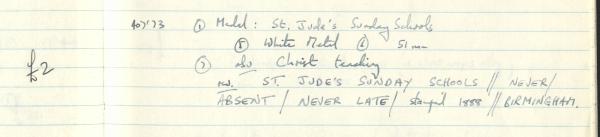 407'73 ① Medal: St. Jude's Sunday Schools
⑤ White Metal ⑥ 51 mm
£2
⑦ obv. Christ teaching
rev. ST. JUDE'S SUNDAY SCHOOLS // NEVER/
ABSENT / NEVER LATE / stamped 1888 // BIRMINGHAM.